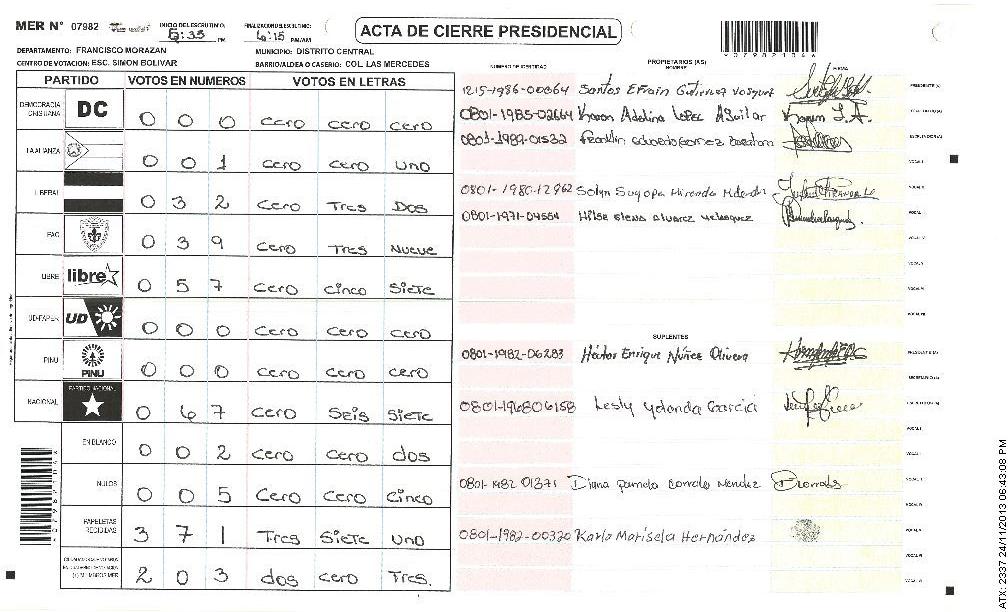 MER N° 07982
INICIO DEL ESCRUTINIO: 5:35 PM
FINALIZACION DEL ESCRUTINIO: 6:15 PM/AM
ACTA DE CIERRE PRESIDENCIAL
DEPARTAMENTO: FRANCISCO MORAZAN
MUNICIPIO: DISTRITO CENTRAL
CENTRO DE VOTACION: ESC. SIMON BOLIVAR
BARRIO/ALDEA O CASERIO: COL LAS MERCEDES
PARTIDO VOTOS EN NUMEROS VOTOS EN LETRAS
DEMOCRACIA CRISTIANA DC 0 0 0 cero cero cero
LA ALIANZA 0 0 1 cero cero uno
LIBERAL 0 3 2 cero Tres Dos
PAC 0 3 9 cero Tres Nueve
LIBRE libre 0 5 7 cero cinco siete
UD-FAPER UD 0 0 0 cero cero cero
PINU PINU 0 0 0 cero cero cero
NACIONAL PARTIDO NACIONAL 0 6 7 cero Seis siete
EN BLANCO 0 0 2 cero cero dos
NULOS 0 0 5 Cero Cero Cinco
PAPELETAS RECIBIDAS 3 7 1 Tres Siete uno
2 0 3 dos cero Tres.
NUMERO DE IDENTIDAD
PROPIETARIOS (AS)
NOMBRE
FIRMA
1215-1986-00064 Santos Efrain Gutierrez Vasquez PRESIDENTE (A)
0801-1985-02664 Karen Adelina Lopez Aguilar
0801-1987-01532 Franklin
0801-1980-12962 Suyapa
0801-1971-04554 Hilse Elena Alvarez Velasquez
SUPLENTES
0801-1982-06283 Héctor Enrique Núñez Olivera PRESIDENTE (A)
0801-196806158 Lesly Yolanda Garcia
0801-1982 01371 Diana Pamela Corrales Mendez
0801-1982-00320 Karla Marisela Hernández
ATX: 2337 24/11/2013 06:43:08 PM